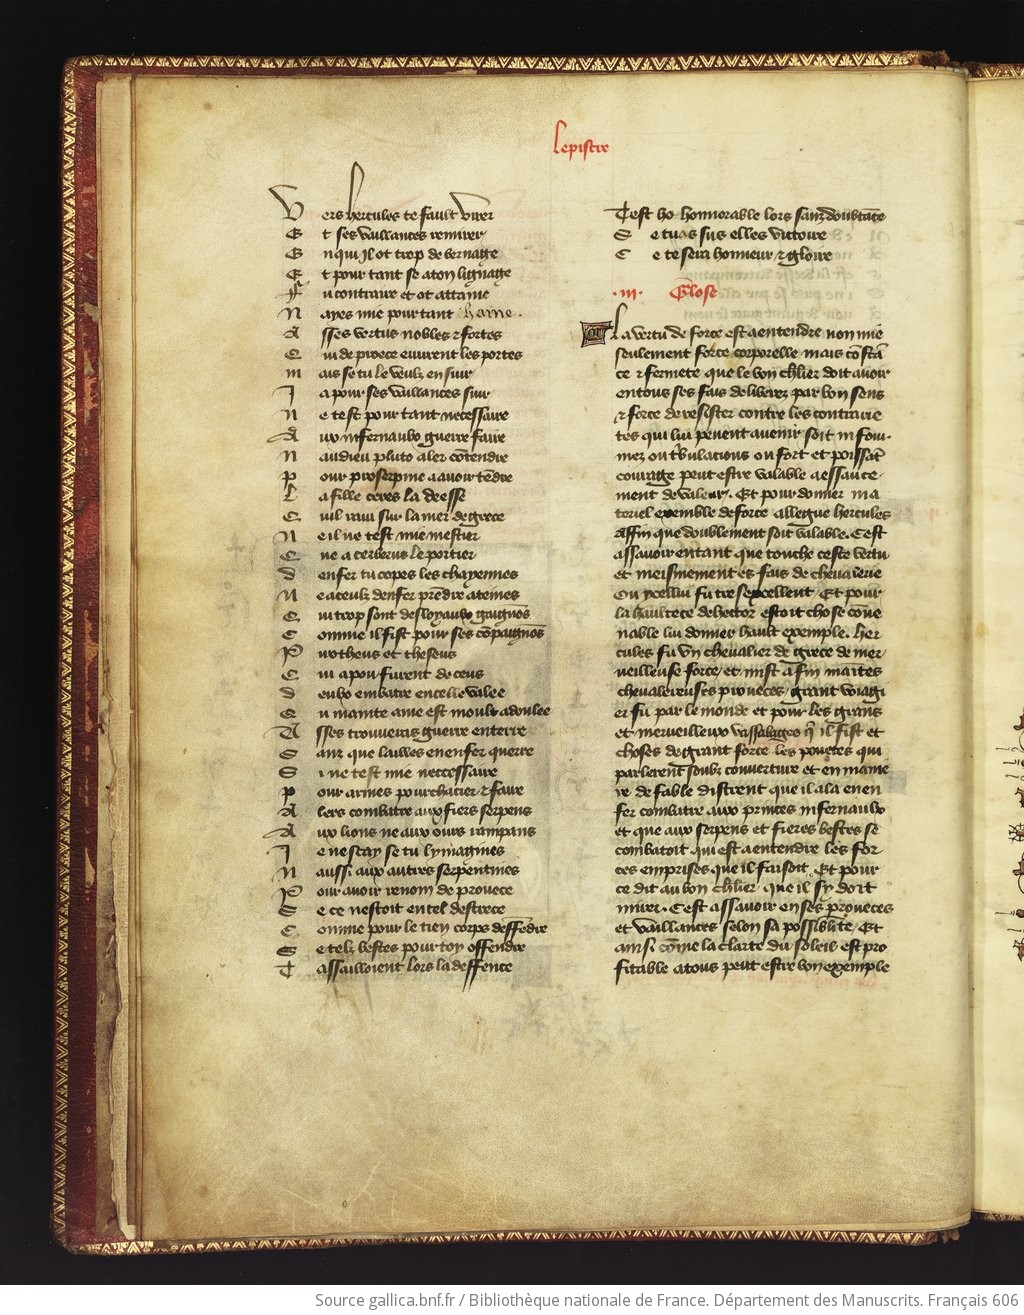 Lepistre
Vers hercules te fault virer
Et ses vaillances remirer
En qui Jl ot trop de bernage
Et pour tant se aton lignage
Fu contraire et ot attaine
Nayes mie pour tant haine.
A sses vertus nobles ⁊ fortes
Qui de proece euurent les portes
Mais se tu le veulz ensuir
Ja pour ses vaillances suir
Ne test pour tant necessaire
Aux infernaulx guerre faire
Naudieu pluto aler cōtendre
Pour proserpine aauoir tēdre
La fille ceres la deesse
Quil raui sur la mer de grece
Ne il ne test mie mestier
Que a cerberus le portier
denfer tu copes les chayennes
Ne aceulz denfer prēdre ateines
Qui trop sont desloyaulx gaignōs
Comme il fist pour ses cōpaignōs
Protheus et theseus
Qui apou furent deceus
deulx embatre encelle valee
Ou mainte ame est moult adoulee
Asses trouueras guerre enterre
Sanz que lailles en enfer querre
Si ne test mie neccessaire
pour armes pourchacier ⁊ faire
Alers combatre aux fiers serpens
Aux lions ne aux ours rampans
Je ne scay se tu lymagines
Naussi aux autres serpentines
Pour auoir renom de prouece
Se ce nestoit en tel destrece
Comme pour le tien corps deffēdre
Se telz bestes pour toy offendre
Tassailloient lors la deffence
Test ho honnorable lors sanz doubtāce
Se tu as sus elles victoire
Ce te sera honneur ⁊ gloire
.iii. Glose
La vertu de force est aentendre non mie
seulement force corporelle mais cōstā
ce ⁊ fermete que le bon chlier doit auoir
en tous ses fais deliberez par bon sens
⁊ force de resister contre les contrarie
tes qui lui peuent auenir soit infou-
nez ou tribulacions ou fort et poissāt
courage peut estre valable a essauce-
ment de valeur. Et pour donner ma
teriel exemble de force allegue hercules
Affin que doublement soit valable. Cest
assauoir entant que touche ceste vertu
et meismement es fais de cheualerie
Ou ycellui fu tres excellent. Et pour
la haultece de hector estoit chose cōue
nable lui donner hault exemple. Her
cules fu vn cheualier de grece de mer
ueilleuse force et mist a fin maītes
cheualereuses proueces. grant voiagi
er fu par le monde et pour les grans
et merueilleux vassalages qu il fist et
choses de grant force les pouetes qui
parlerent soubz couuerture et en manie
re de fable distrent que il ala en en
fer combatre aux princes infernaulx
et que aux serpens et fieres bestes se
combatoit qui est aentendre les for
ces emprises que il faisoit. Et pour
ce dit au bon chlier que il sy doit
mirer. Cest assauoir en ses proueces
et vaillances selon sa possiblité. Et
ainsi cōme la clarte du soleis est pro
fitable atous peut estre bon exemple
Source gallica.bnf.fr / Bibliothèque nationale de France. Département des Manuscrits. Français 606